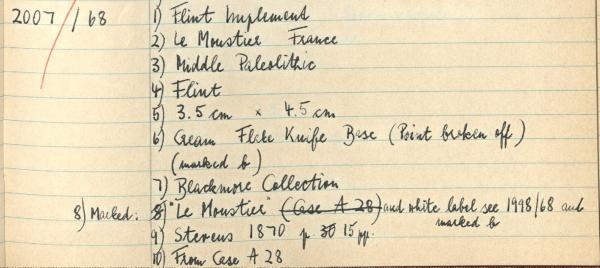 2007 / 68
1) Flint Implement
2) Le Moustier France
3) Middle Paleolithic
4) Flint
5) 3.5 cm × 4.5 cm
6) Cream Flake Knife Base (Point broken off)
(marked b)
7) Blackmore Collection
8) Marked: 8) "Le Moustier" (Case A 28) and white label see 1998/68 and
marked b
9) Stevens 1870 p. 30 15 pp.
10) From Case A 28